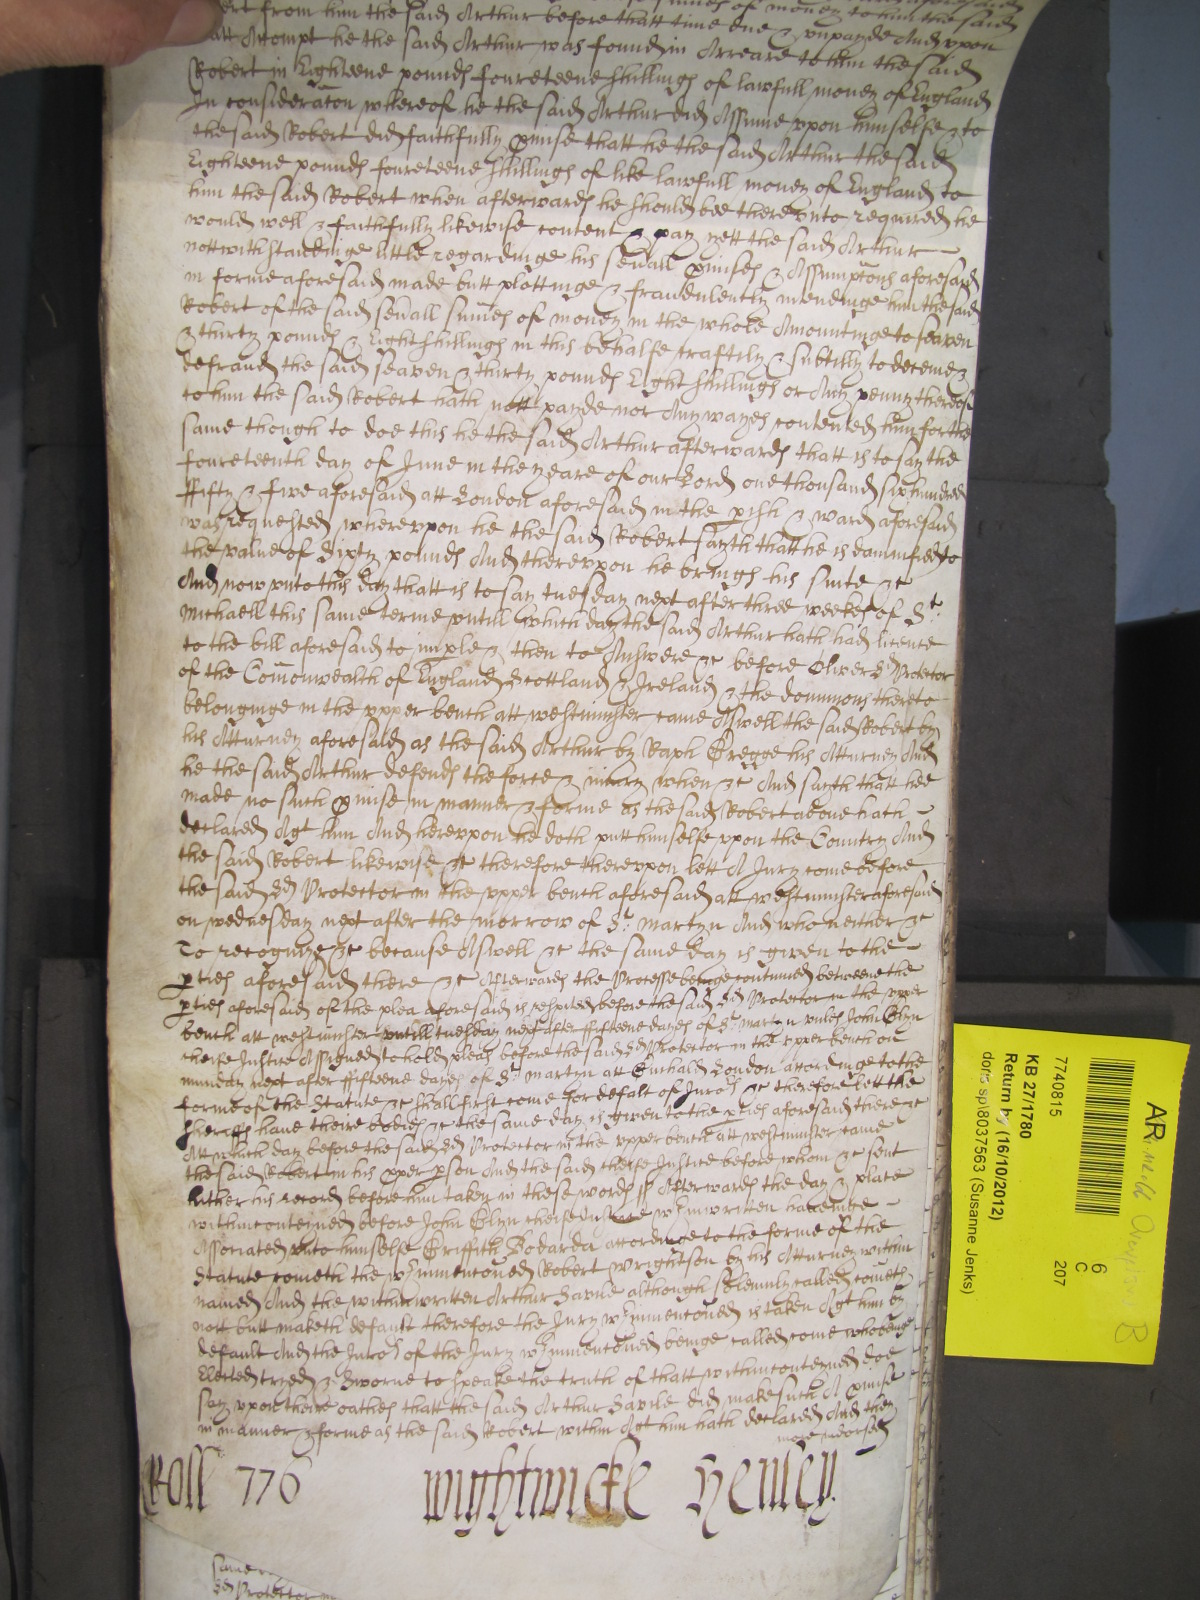 from him the said Arthur before thatt time due & unpayde And uppon
Attompt he the said Arthur was found in Arreare to him the said
Robert in Eighteene pounds foureteene shillings of lawfull money of England
In consideracon whereof he the said Arthur did Assume uppon himselfe & to
the said Robert did faithfully pmise thatt he the said Arthur the said
Eighteene pounds foureteene shillings of like lawfull money of England to
him the said Robert when afterwards he should bee thereunto required he
would well & faithfully likewise content & pay yett the said Arthur
nottwithstandinge little regardinge his sevall pmises & Assumptions aforesaid
in forme aforesaid made butt plottinge & fraudulently intendinge him the said
Robert of the said sevall summes of money in the whole Amountinge to seaven
& thirty pounds & Eight shillings in this behalfe craftily & subtilly to deceive &
defraud the said seaven & thirty pounds Eight shillings or Any penny thereof
to him the said Robert hath nott payde nor Any wayes contented him for the
same though to doe this he the said Arthur afterwards thatt is to say the
foureteenth day of June in the yeare of our Lord one thousand six hundred
fifty & five aforesaid att London aforesaid in the pish & ward aforesaid
was requested whereuppon he the said Robert sayth thatt he is damnified to
the value of Sixty pounds And thereuppon he brings his suite &c
And now unto this day thatt is to say tuesday next after three weekes of St
Michaell this same terme untill which day the said Arthur hath had licence
to the bill aforesaid to imple & then to Answere &c before Oliver Ld Protector
of the Comonwealth of England Scottland & Ireland & the dominions thereto
belonginge in the upper bench att westminster came Aswell the said Robert by
his Atturney aforesaid as the said Arthur by Raph Gregge his Atturney And
he the said Arthur defends the force & iniury when &c And sayth thatt hee
made no such pmise in manner & forme as the said Robert above hath
declared Agt him And hereuppon he doth putt himselfe uppon the Country And
the said Robert likewise &c therefore thereuppon lett A Jury come before
the said Ld Protector in the upper bench aforesaid att westminster aforesaid
on wednesday next after the morrow of St martyn And who neither &c
To recognize &c because Aswell &c the same day is given to the
pties aforesaid there &c Afterwards the Processe beinge continued betweene the
pties aforesaid of the plea aforesaid is respited before the said Ld Protector in the upper
bench att westminster untill tuesday next after fifteene dayes of St martyn unles John Glyn
cheife Justice Assigned to hold pleas before the said Ld Protector in the upper bench on
munday next after fifteene dayes of St martyn att Guihald London accordinge to the
forme of the Statute &c shall first come for defalt of Juros &c therefore lett the
sheriffs have theire bodies &c the same day is given to the pties aforesaid there &c
Att which day before the said Ld Protector in the upper bench att westminster came
the said Robert in his pper pson And the said cheife Justice before whom &c sent
hither his record before him taken in these words Afterwards the day & place
within conteyned before John Glyn cheife Justice within written haveinge
Associated unto himselfe Griffith Bodurda accordinge to the forme of the
Statute cometh the within mentioned Robert Wrightson by his Atturney within
named And the within written Arthur Savile although solemnly called cometh
nott butt maketh default therefore the Jury within mentioned is taken Agt him by
default And the Juros of the Jury within mentioned beinge called come who beinge
Elected tryed & Sworne to speake the truth of thatt within conteyned doe
say uppon theire oathes thatt the said Arthur Savile did make such A pmise
in manner & forme as the said Robert within Agt him hath declared And they
more indorsed
Roll 776 Wightwicke Henley
same
Ld Protector
AR
6
C
207
7740815
KB 27/1780
Return by (16/10/2012)
doris sp\8037563 (Susanne Jenks)